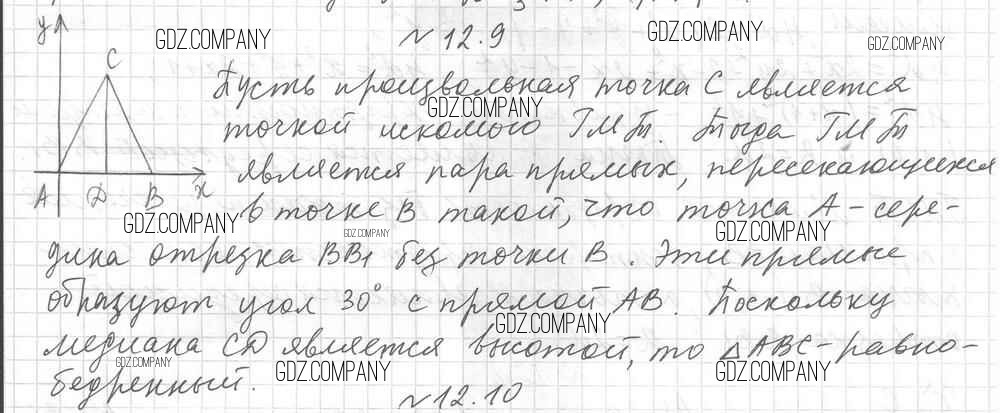 y
C
A D B x
№ 12.9
Пусть произвольная точка С является
точкой искомого ГМТ. Тогда ГМТ
является пара прямых, пересекающихся
в точке В такой, что точка А - сере-
дина отрезка BB₁ без точки В. Эти прямые
образуют угол 30° с прямой АВ. Поскольку
медиана CD является высотой, то △АВС - равно-
бедренный.
№ 12.10
GDZ.COMPANY
GDZ.COMPANY
GDZ.COMPANY
GDZ.COMPANY
GDZ.COMPANY
GDZ.COMPANY
GDZ.COMPANY
GDZ.COMPANY
GDZ.COMPANY
GDZ.COMPANY
GDZ.COMPANY